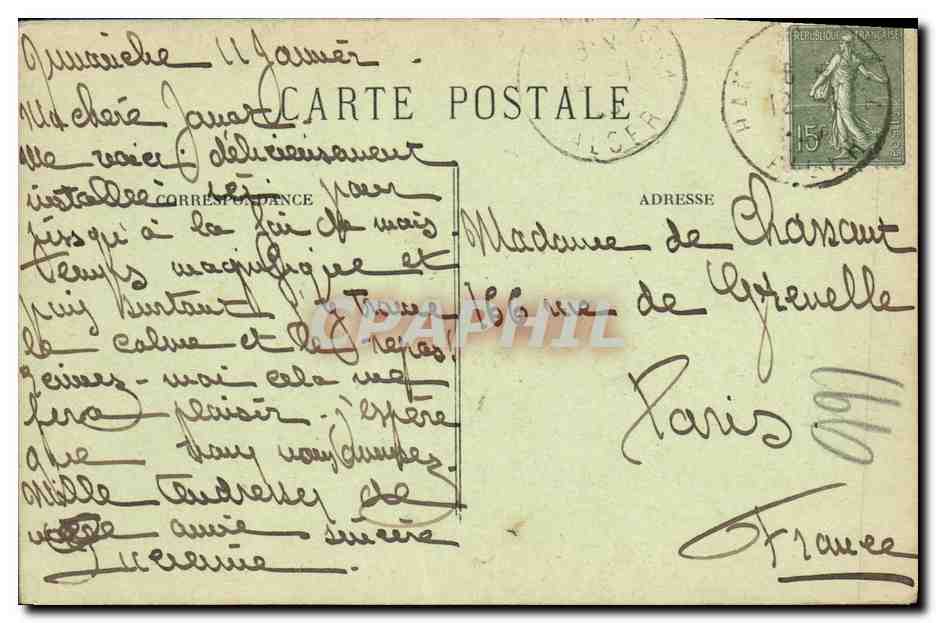 Dimanche 11 Janvier.
CARTE POSTALE
REPUBLIQUE FRANÇAISE
15c
ALGER
Ma chère
Me voici délicieusement
installée ici pour
CORRESPONDANCE
jusqu'à la fin du mois.
Temps magnifique et
puis surtout j'y trouve
le calme et le repos!
Ecrivez-moi cela me
fera plaisir. j'espère
que vous vous
Mille tendresses de
votre amie sincère
ADRESSE
Madame de Chassaut
166 rue de Grenelle
Paris
France
CPAPHIL